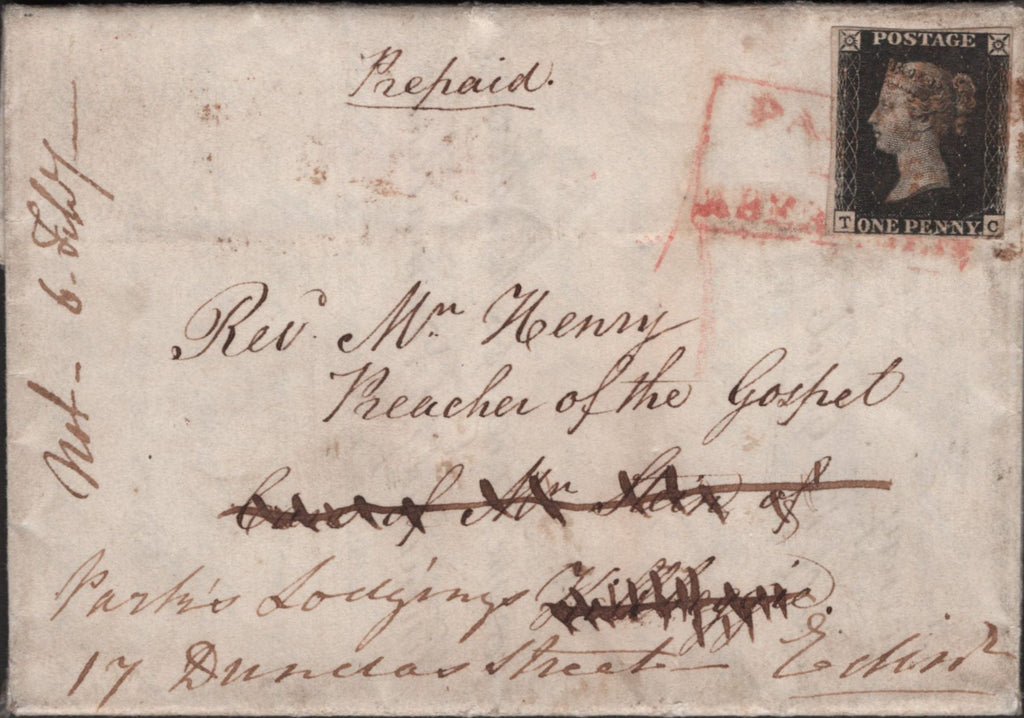 Prepaid.
POSTAGE
PA
T ONE PENNY C
Rev.d Mr. Henry
Preacher of the Gospel
Care of Mr Stein of
Park's Lodgings
17 Dundas Street Edinr
Not - 6